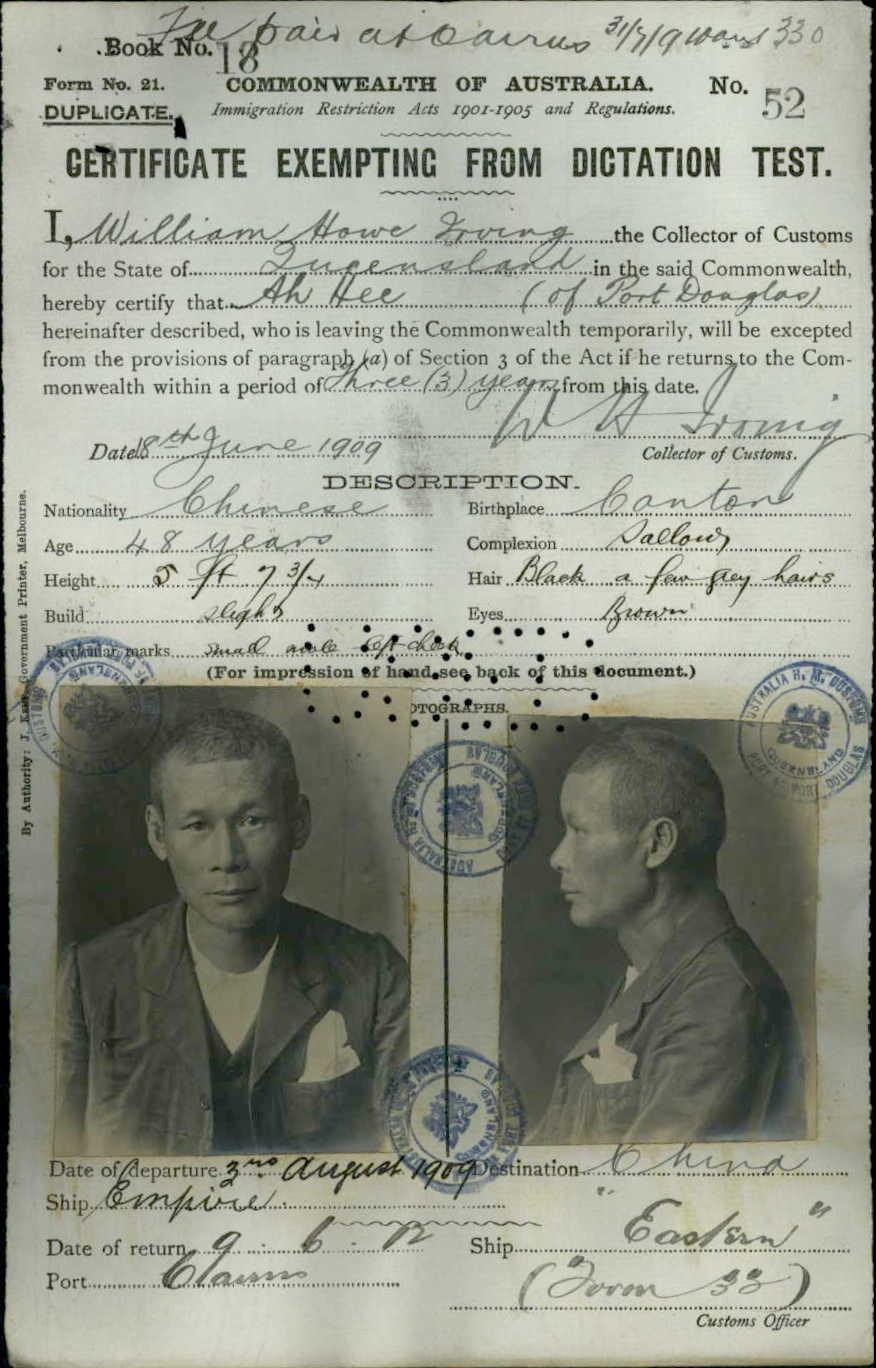 Fee paid at Cairns 31/7/9 330
Book No. 18
Form No. 21. COMMONWEALTH OF AUSTRALIA. No. 52
DUPLICATE. Immigration Restriction Acts 1901-1905 and Regulations.
CERTIFICATE EXEMPTING FROM DICTATION TEST.
I, William Howe Irving the Collector of Customs
for the State of Queensland in the said Commonwealth,
hereby certify that Ah Hee (of Port Douglas)
hereinafter described, who is leaving the Commonwealth temporarily, will be excepted
from the provisions of paragraph (a) of Section 3 of the Act if he returns to the Com-
monwealth within a period of Three (3) years from this date.
W H Irving
Date 8th June 1909 Collector of Customs.
DESCRIPTION.
Nationality Chinese Birthplace Canton
Age 48 years Complexion Sallow
Height 5 ft 7 3/4 Hair Black a few grey hairs
Build slight Eyes Brown
Particular marks small left cheek
(For impression of hand see back of this document.)
PHOTOGRAPHS.
By Authority: J. Kemp, Government Printer, Melbourne.
AUSTRALIA H. M. CUSTOMS
QUEENSLAND
PORT DOUGLAS
Date of departure 3rd August 1909 Destination China
Ship Empire
Date of return 9 . 6 . 12 Ship "Eastern"
Port Cairns (Form 32)
Customs Officer